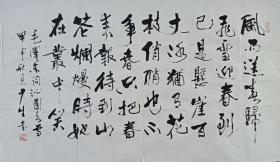 風雨送春歸
飛雪迎春到
已是懸崖百
丈冰猶有花
枝俏俏也不
争春只把春
来報待到山
花爛漫時她
在叢中笑
毛澤東詞
甲申